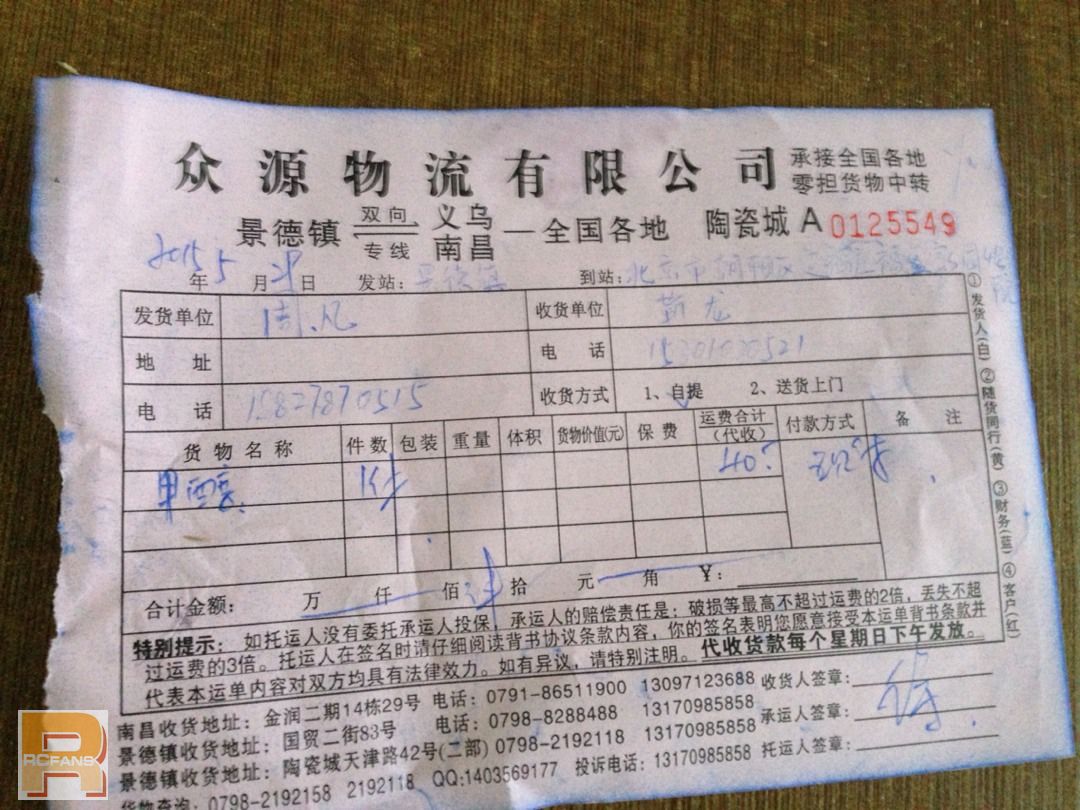 众源物流有限公司 承接全国各地
零担货物中转
景德镇 双向专线 义乌 南昌 — 全国各地 陶瓷城 A 0125549
2015年5月 日 发站: 景德镇 到站: 北京市朝阳区
发货单位 周凡 收货单位 黄龙
地址 电话
电话 15827870515 收货方式 1、自提 2、送货上门
货物名称 件数 包装 重量 体积 货物价值(元) 保费 运费合计(代收) 付款方式 备注
甲醇 1件 40
合计金额: 万 仟 佰 拾 元 角 ¥:
特别提示: 如托运人没有委托承运人投保,承运人的赔偿责任是:破损等最高不超过运费的2倍,丢失不超
过运费的3倍。托运人在签名时请仔细阅读背书协议条款内容,你的签名表明您愿意接受本运单背书条款并
代表本运单内容对双方均具有法律效力。如有异议,请特别注明。代收货款每个星期日下午发放。
南昌收货地址: 金润二期14栋29号 电话: 0791-86511900 13097123688 收货人签章:
景德镇收货地址: 国贸二街83号 电话: 0798-8288488 13170985858 承运人签章:
景德镇收货地址: 陶瓷城天津路42号(二部) 0798-2192118 13170985858 托运人签章:
货物查询: 0798-2192158 2192118 QQ:1403569177 投诉电话: 13170985858
①发货人(白) ②随货同行(黄) ③财务(蓝) ④客户(红)
RCFANS